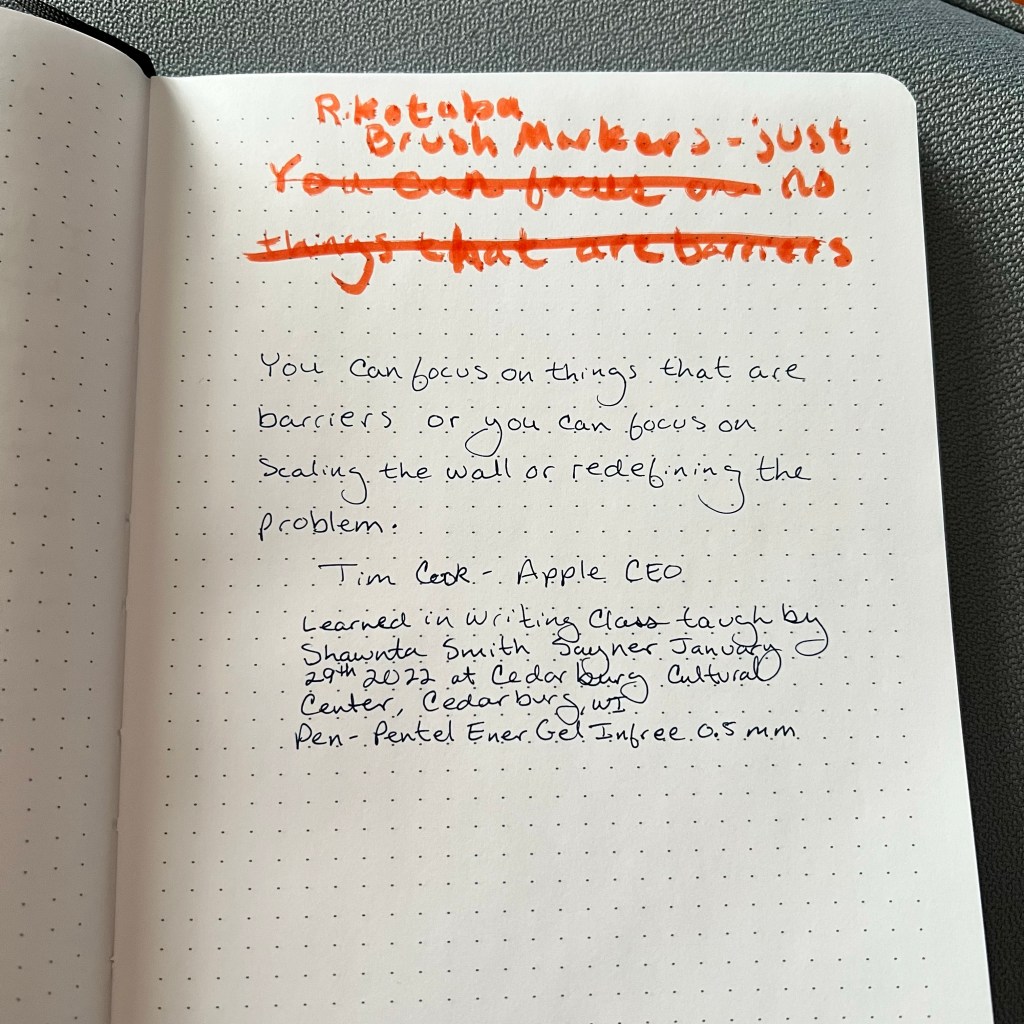 R.Kotaba
Brush Markers - just
You can focus on no
things that are barriers
You can focus on things that are
barriers or you can focus on
Scaling the wall or redefining the
problem.
Tim Cook - Apple CEO
Learned in writing Class taugh by
Shawnta Smith Sayner January
29th 2022 at Cedarburg Cultural
Center, Cedarburg, WI
Pen - Pentel EnerGel Infree 0.5 mm